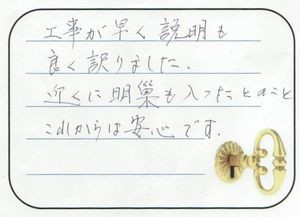 工事が早く説明も
良く訳りました.
近くに明巣も入ったとのこと
これからは安心です.